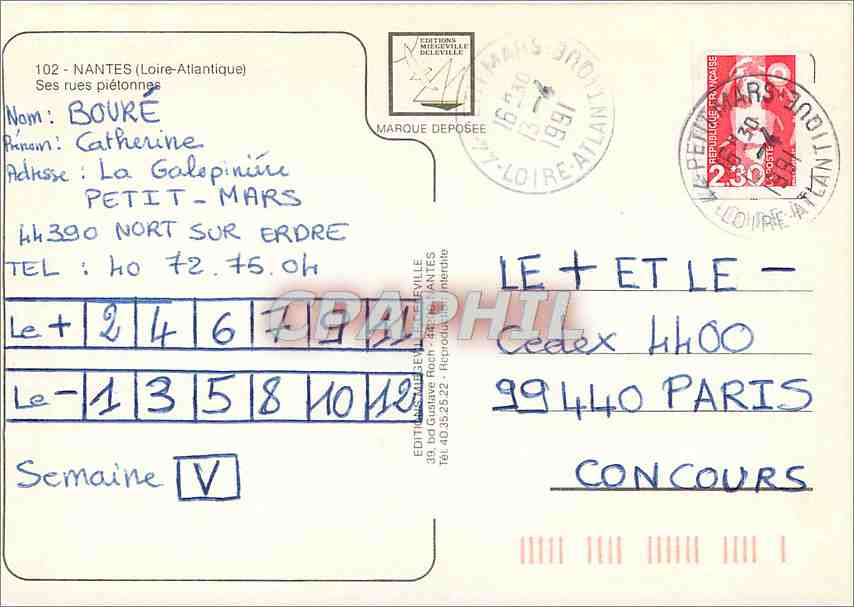 102 - NANTES (Loire-Atlantique)
Ses rues piétonnes
EDITIONS
MIEGEVILLE
DELEVILLE
MARQUE DEPOSEE
Nom: BOURÉ
Prénom: Catherine
Adresse : La Galopinière
PETIT-MARS
44390 NORT SUR ERDRE
TEL : 40 72.75.04
Le + 2 4 6 7 9 11
Le - 1 3 5 8 10 12
Semaine V
EDITIONS MIEGEVILLE DELEVILLE
39, bd Gustave Roch - NANTES
Tél. 40.35.25.22 - Reproduction interdite
CPAPHIL
16 H 30
13
1991
44-LOIRE-ATLANTIQUE
RÉPUBLIQUE FRANÇAISE
2,30
LA POSTE
44 PETIT-MARS
LOIRE-ATLANTIQUE
LE + ET LE -
Cedex 4400
99440 PARIS
CONCOURS